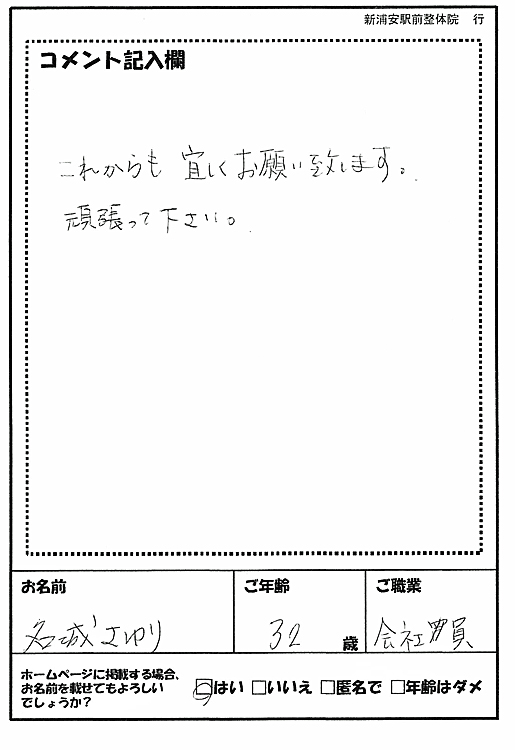 新浦安駅前整体院 行
コメント記入欄
これからも 宜しくお願い致します。
頑張って下さい。
お名前
ご年齢
ご職業
名城さゆり
32 歳
会社員
ホームページに掲載する場合、
お名前を載せてもよろしい
でしょうか?
☑はい □いいえ □匿名で □年齢はダメ